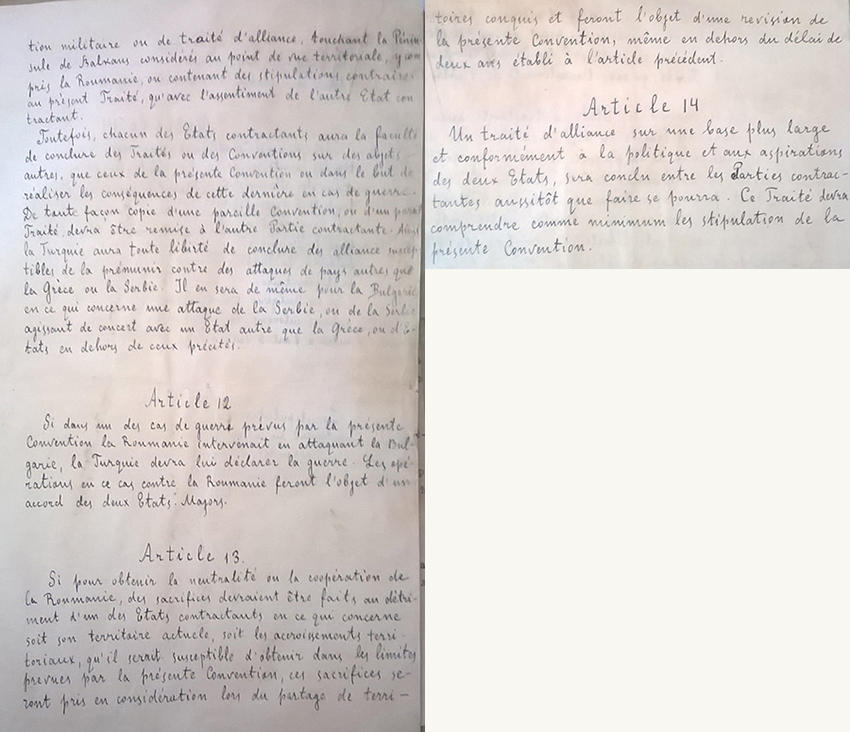 tion militaire ou de traité d'alliance, touchant la Pénin
sule de Balkans considérés au point de vue territoriale, y com
pris la Roumanie, ou contenant des stipulations contraires
au présent Traité, qu'avec l'assentiment de l'autre Etat con
tractant.
Toutefois, chacun des Etats contractants aura la faculté
de conclure des Traités ou des Conventions sur des objets
autres, que ceux de la présente Convention ou dans le but de
réaliser les conséquences de cette dernière en cas de guerre.
De toute façon copie d'une pareille Convention, ou d'un pareil
Traité, devra être remise à l'autre Partie contractante. Ainsi
la Turquie aura toute liberté de conclure des alliance suscep
tibles de la prémunir contre des attaques de pays autres que
la Grèce ou la Serbie. Il en sera de même pour la Bulgarie
en ce qui concerne une attaque de la Serbie, ou de la Serbie
agissant de concert avec un Etat autre que la Grèce, ou d'E-
tats en dehors de ceux précités.
Article 12
Si dans un des cas de guerre prévus par la présente
Convention la Roumanie intervenait en attaquant la Bul-
garie, la Turquie devra lui déclarer la guerre. Les opé-
rations en ce cas contre la Roumanie feront l'objet d'un
accord des deux Etats-Majors.
Article 13.
Si pour obtenir la neutralité ou la coopération de
la Roumanie, des sacrifices devraient être faits au détri-
ment d'un des Etats contractants en ce qui concerne
soit son territoire actuele, soit les accroissements terri-
toriaux, qu'il serait susceptible d'obtenir dans les limites
prevues par la présente Convention, ces sacrifices se-
ront pris en considération lors du partage de terri-
toires conquis et feront l'objet d'une revision de
la présente Convention, même en dehors du délai de
deux ans établi à l'article précédent.
Article 14
Un traité d'alliance sur une base plus large
et conformément à la politique et aux aspirations
des deux Etats, sera conclu entre les Parties contrac-
tantes aussitôt que faire se pourra. Ce Traité devra
comprendre comme minimum les stipulation de la
présente Convention.